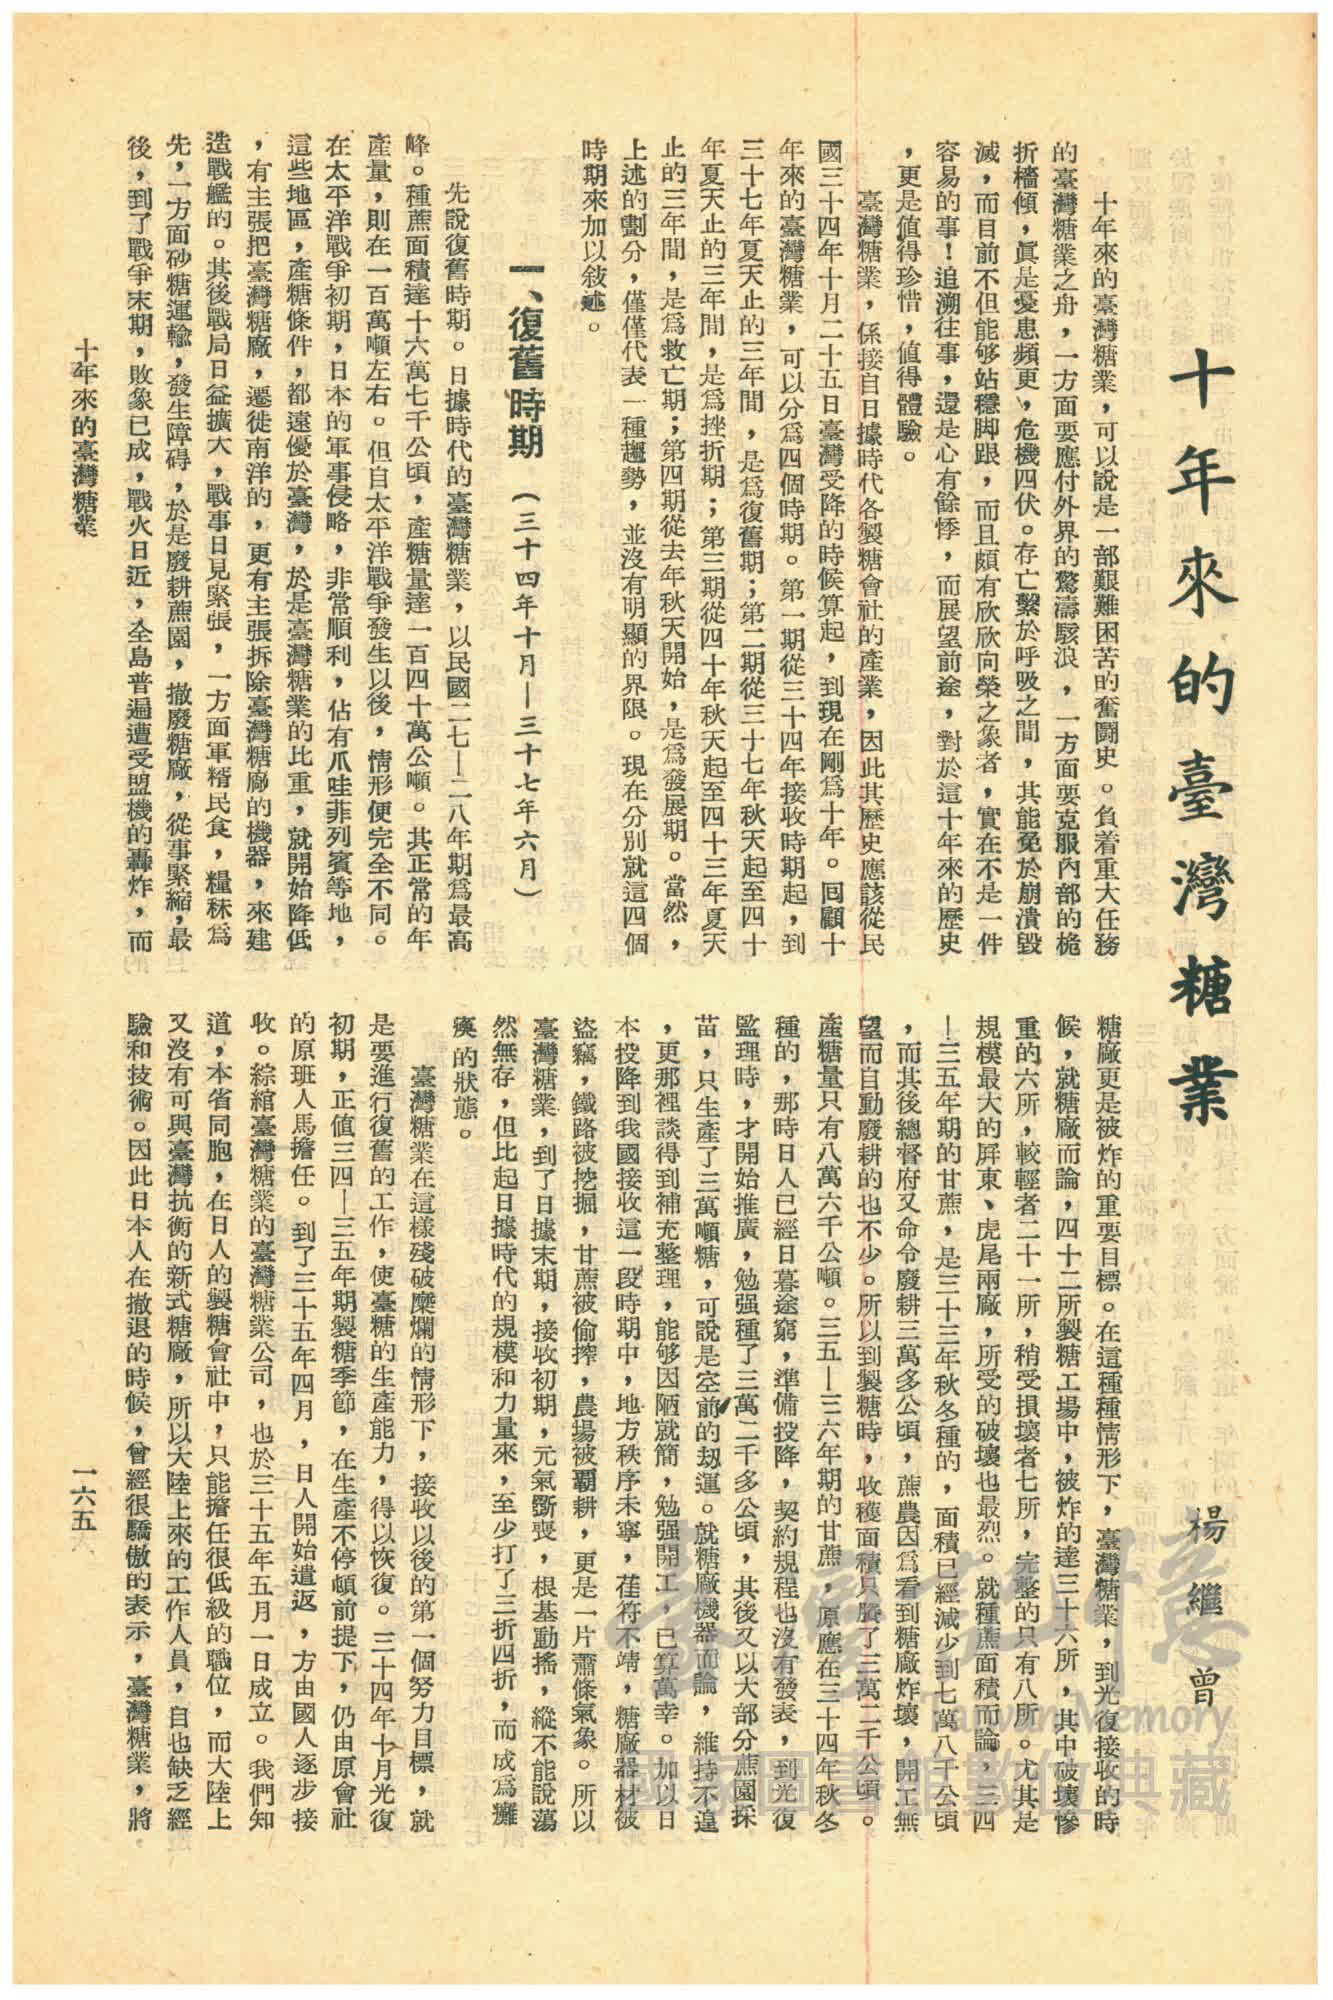 十年來的臺灣糖業
楊繼曾
十年來的臺灣糖業，可以說是一部艱難困苦的奮鬪史。負着重大任務
的臺灣糖業之舟，一方面要應付外界的驚濤駭浪，一方面要克服內部的桅
折檣傾，眞是憂患頻更，危機四伏。存亡繫於呼吸之間，其能免於崩潰毀
滅，而目前不但能够站穩脚跟，而且頗有欣欣向榮之象者，實在不是一件
容易的事！追溯往事，還是心有餘悸，而展望前途，對於這十年來的歷史
，更是值得珍惜，值得體驗。
臺灣糖業，係接自日據時代各製糖會社的產業，因此其歷史應該從民
國三十四年十月二十五日臺灣受降的時候算起，到現在剛爲十年。回顧十
年來的臺灣糖業，可以分爲四個時期。第一期從三十四年接收時期起，到
三十七年夏天止的三年間，是爲復舊期；第二期從三十七年秋天起至四十
年夏天止的三年間，是爲挫折期；第三期從四十年秋天起至四十三年夏天
止的三年間，是爲救亡期；第四期從去年秋天開始，是爲發展期。當然，
上述的劃分，僅僅代表一種趨勢，並沒有明顯的界限。現在分別就這四個
時期來加以敍述。
一、復舊時期（三十四年十月—三十七年六月）
先說復舊時期。日據時代的臺灣糖業，以民國二七—二八年期爲最高
峰。種蔗面積達十六萬七千公頃，產糖量達一百四十萬公噸。其正常的年
產量，則在一百萬噸左右。但自太平洋戰爭發生以後，情形便完全不同。
在太平洋戰爭初期，日本的軍事侵略，非常順利，佔有爪哇菲列賓等地，
這些地區，產糖條件，都遠優於臺灣，於是臺灣糖業的比重，就開始降低
，有主張把臺灣糖廠，遷徙南洋的，更有主張拆除臺灣糖廠的機器，來建
造戰艦的。其後戰局日益擴大，戰事日見緊張，一方面軍糈民食，糧秣爲
先，一方面砂糖運輸，發生障碍，於是廢耕蔗園，撤廢糖廠，從事緊縮，最
後，到了戰爭末期，敗象已成，戰火日近，全島普遍遭受盟機的轟炸，而
糖廠更是被炸的重要目標。在這種種情形下，臺灣糖業，到光復接收的時
候，就糖廠而論，四十二所製糖工場中，被炸的達三十六所，其中破壞慘
重的六所，較輕者二十一所，稍受損壞者七所，完整的只有八所。尤其是
規模最大的屛東、虎尾兩廠，所受的破壞也最烈。就種蔗面積而論，三四
—三五年期的甘蔗，是三十三年秋冬種的，面積已經減少到七萬八千公頃
，而其後總督府又命令廢耕三萬多公頃，蔗農因爲看到糖廠炸壞，開工無
望而自動廢耕的也不少。所以到製糖時，收穫面積只賸了三萬二千公頃。
產糖量只有八萬六千公噸。三五—三六年期的甘蔗，原應在三十四年秋冬
種的，那時日人已經日暮途窮，準備投降，契約規程也沒有發表，到光復
監理時，才開始推廣，勉强種了三萬二千多公頃，其後又以大部分蔗園採
苗，只生產了三萬噸糖，可說是空前的刼運。就糖廠機器而論，維持不遑
，更那裡談得到補充整理，能够因陋就簡，勉强開工，已算萬幸。加以日
本投降到我國接收這一段時期中，地方秩序未寧，萑苻不靖，糖廠器材被
盜竊，鐵路被挖掘，甘蔗被偷搾，農場被覇耕，更是一片蕭條氣象。所以
臺灣糖業，到了日據末期，接收初期，元氣斲喪，根基動搖，縱不能說蕩
然無存，但比起日據時代的規模和力量來，至少打了三折四折，而成爲癱
瘓的狀態。
臺灣糖業在這樣殘破糜爛的情形下，接收以後的第一個努力目標，就
是要進行復舊的工作，使臺糖的生產能力，得以恢復。三十四年十月光復
初期，正值三四—三五年期製糖季節，在生產不停頓前提下，仍由原會社
的原班人馬擔任。到了三十五年四月，日人開始遣返，方由國人逐步接
收。綜綰臺灣糖業的臺灣糖業公司，也於三十五年五月一日成立。我們知
道，本省同胞，在日人的製糖會社中，只能擔任很低級的職位，而大陸上
又沒有可與臺灣抗衡的新式糖廠，所以大陸上來的工作人員，自也缺乏經
驗和技術。因此日本人在撤退的時候，曾經很驕傲的表示，臺灣糖業，將
十年來的臺灣糖業
一六五
臺灣記憶
Taiwan Memory
國家圖書館數位典藏